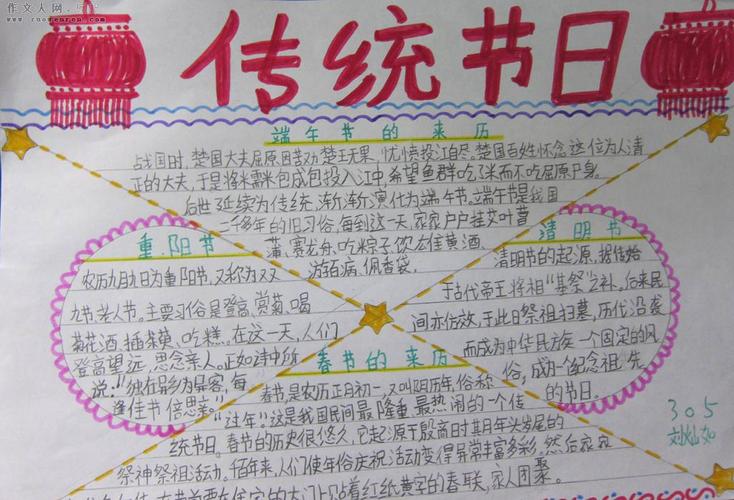 作文人网
传统节日
端午节的来历
战国时,楚国大夫屈原因苦劝楚王无果,忧愤投江自尽。楚国百姓怀念这位为人清
正的大夫,于是将米需米包成包投入江中,希望鱼群吃了米而不吃屈原尸身。
后世延续为传统,渐渐演化为端午节。端午节是我国
二千多年的旧习俗,每到这一天,家家户户挂艾叶菖
蒲、赛龙舟、吃粽子、饮雄黄酒、
游百病,佩香袋,
重阳节
农历九月九日为重阳节,又称为双
九节,老人节。主要习俗是登高、赏菊、喝
菊花酒、插茱萸、吃糕。在这一天,人们
登高望远,思念亲人。正如诗中所
说:“独在异乡为异客,每
逢佳节倍思亲。”
清明节
清明节的起源,据传始
于古代帝王将相“墓祭”之礼,后来民
间亦仿效,于此日祭祖扫墓,历代沿袭
而成为中华民族一个固定的风
俗,成为一个纪念祖先
的节日。
春节的来历
春节,是农历正月初一,又叫阴历年,俗称
“过年”。这是我国民间最隆重、最热闹的一个传
统节日。春节的历史很悠久,它起源于殷商时期年头岁尾的
祭神祭祖活动。百年来,人们使年俗庆祝活动变得异常丰富多彩,然后家家
在住宅的大门上贴着红纸黄字的春联,家人团聚。
305